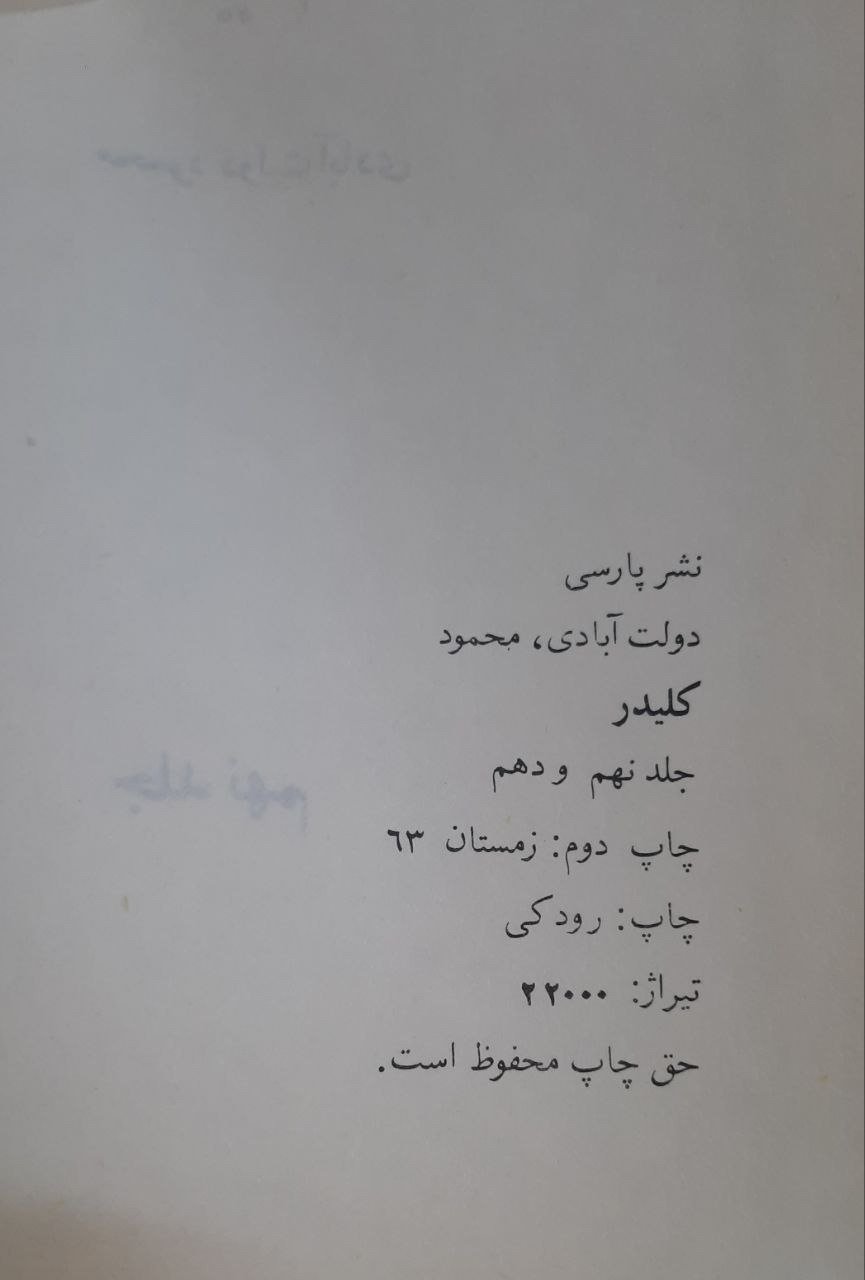 نشر پارسی
دولت آبادی، محمود
کلیدر
جلد نهم و دهم
چاپ دوم: زمستان ٦٣
چاپ: رودکی
تیراژ: ۲۲۰۰۰
حق چاپ محفوظ است.